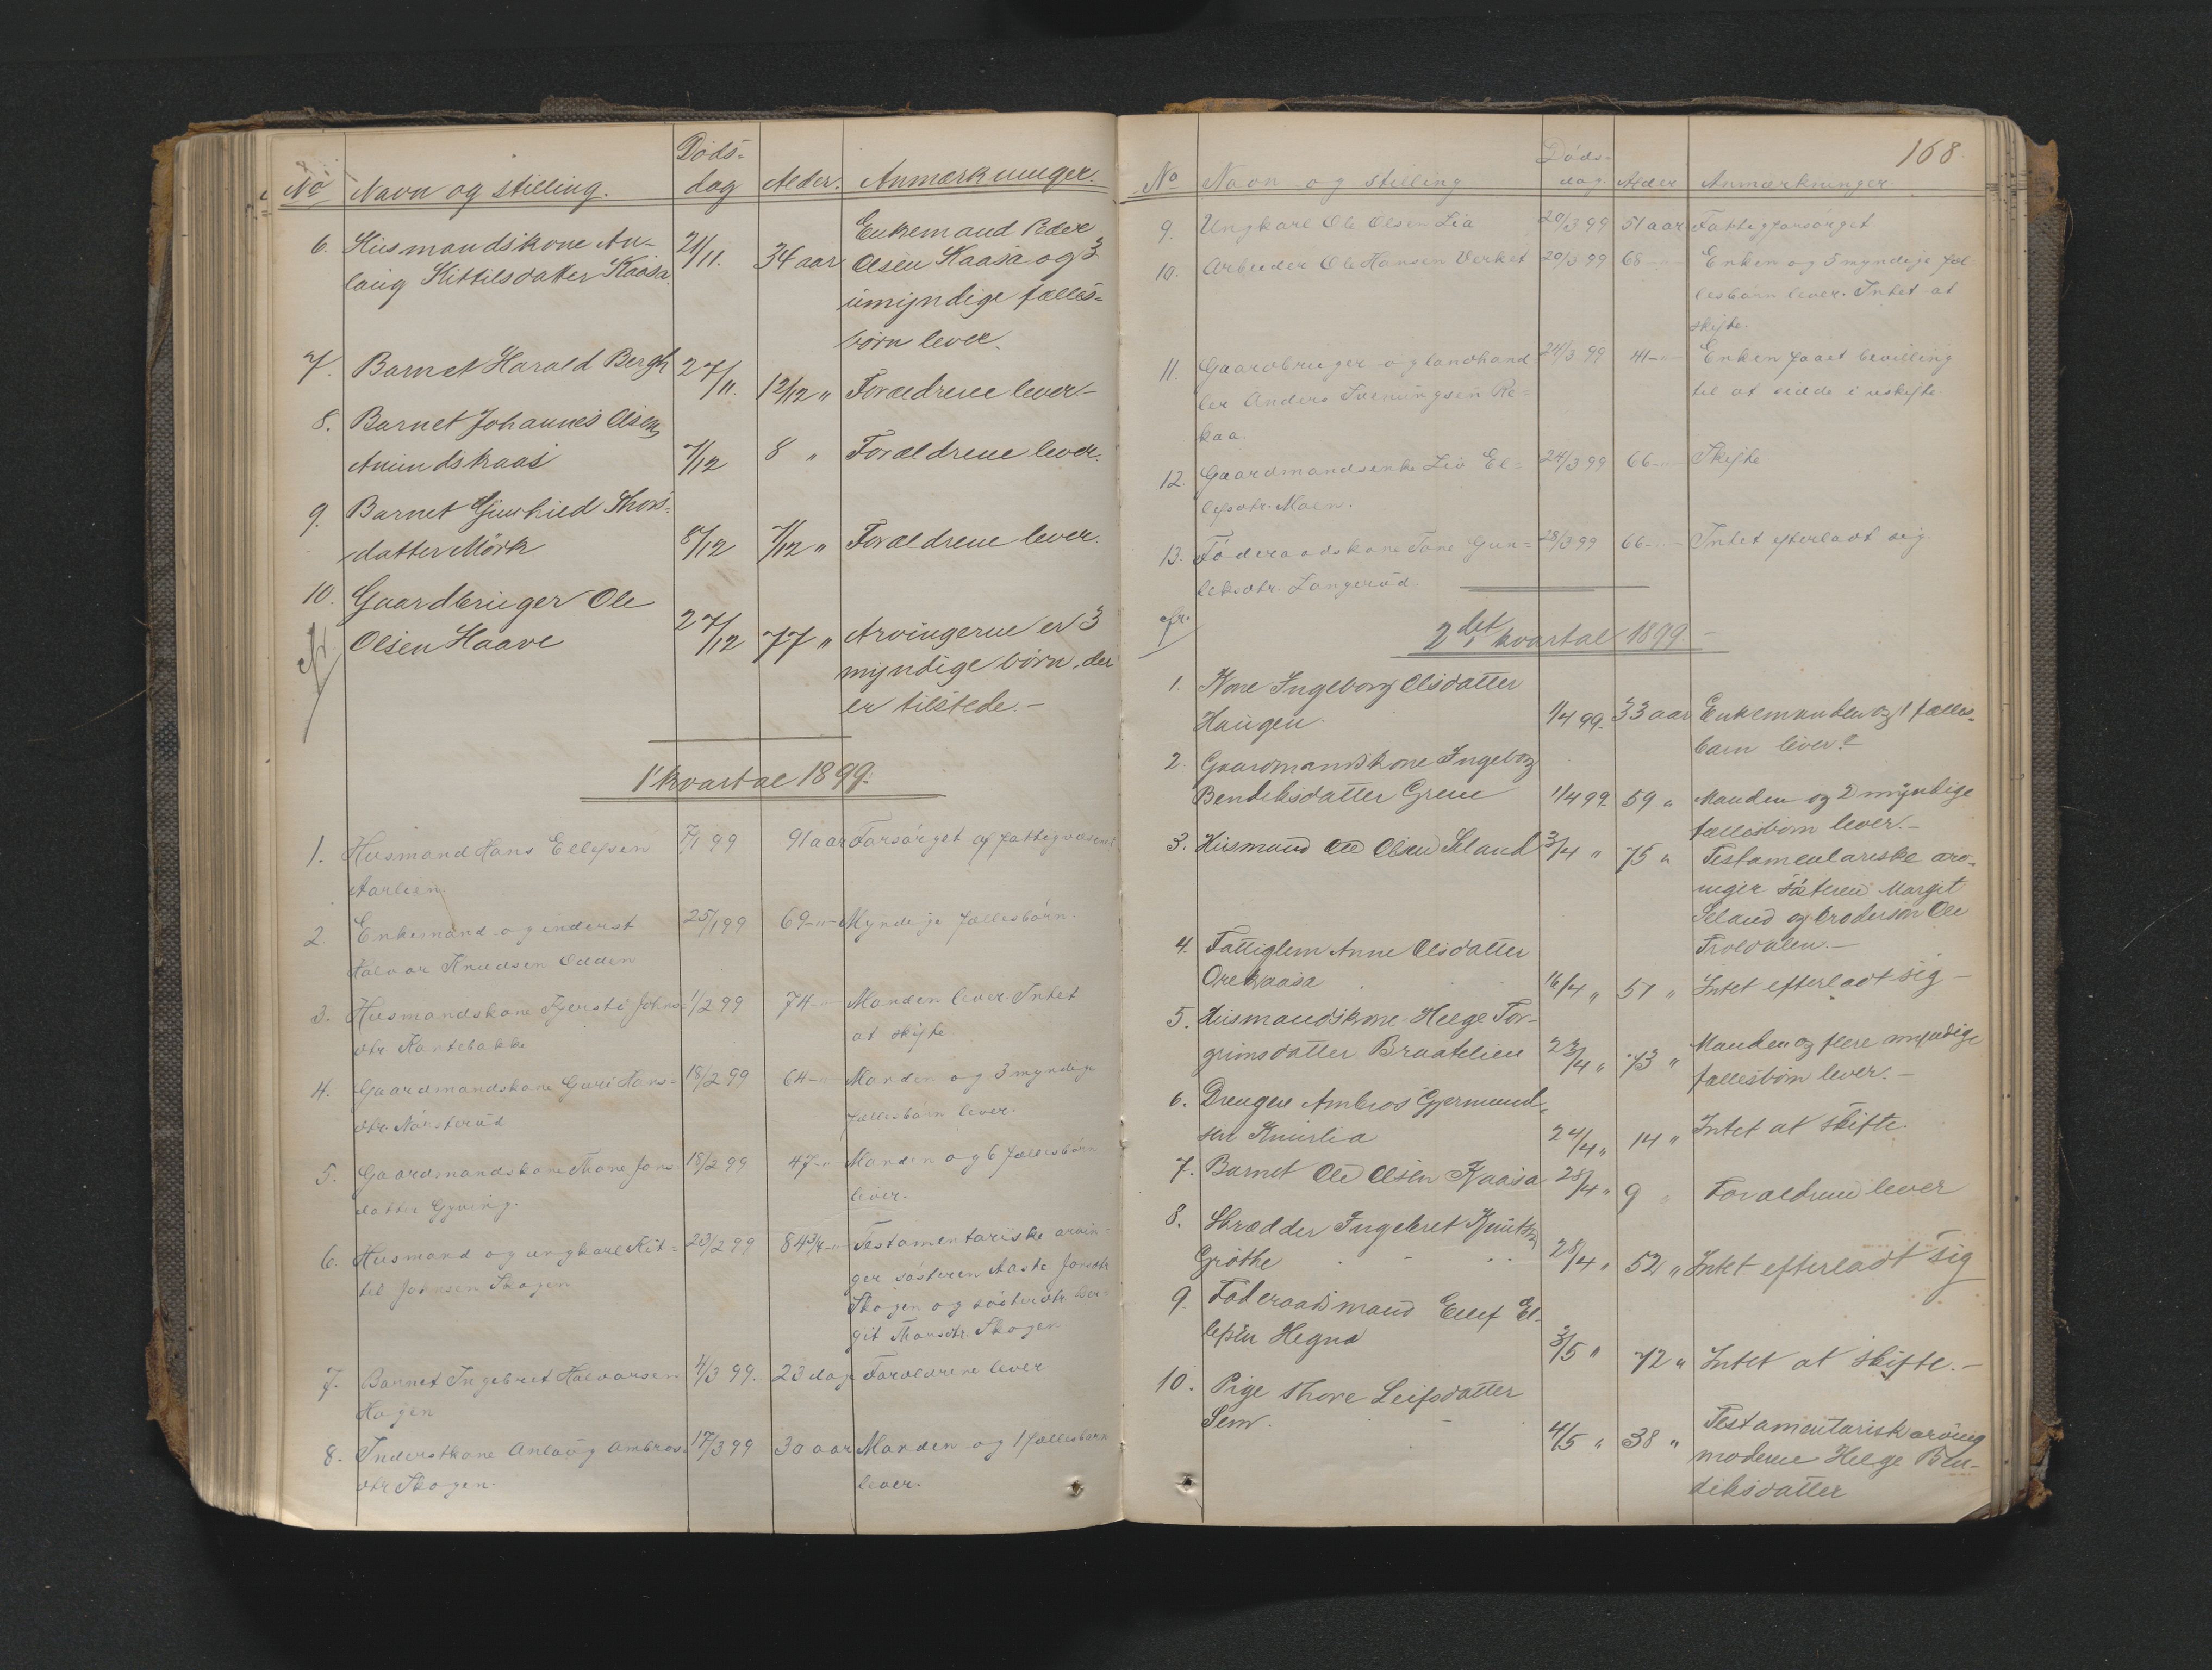 Döds-
No Navn og stilling. dag Alder. Anmærkninger.
6. Husmandskone An- 21/11. 34 aar Enkemand Peder
laug Kittilsdatter Kaasa. Olsen Kaasa og 3
umyndige fælles-
børn lever.
7. Barnet Harald Bergh 27/11. 12/12 " Forældrene lever-
8. Barnet Johannes Olsen
Amundskaas 7/12 8 " Forældrene lever.
9. Barnet Gunhild Thors-
datter Mörk 8/12 7/12 " Forældrene lever.
10. Gaardbruger Ole
Olsen Haave 27/12 77 " Arvingerne er 3
myndige børn, der
er tilstede.-
1' kvartal 1899.
1. Husmand Hans Ellefsen 7/1 99 91 aar Forsörget af fattigvæsenet
Aarlien.
2. Enkemand og inderst 25/1 99 69-"- Myndige fællesbörn.
Halvor Knudsen Odden
3. Husmandskone Kjersti Johns- 1/2 99 74-"- Manden lever. Intet
dtr. Kantebakke at skifte
4. Gaardmandskone Guri Hans- 18/2 99 64-"- Manden og 3 myndige
dtr. Nörsteröd fællesbörn lever.
5. Gaardmandskone Thone Jons- 18/2 99 47-"- Manden og 6 fællesbörn
datter Gyving. lever.
6. Husmand og ungkarl Kit- 23/2 99 84 3/4-"- Testamentariske arvin-
til Johnsen Skogen ger sösteren Aaste Jonsdtr
Skogen og sösterdtr. Ber-
git Hansdtr. Skogen
7. Barnet Ingebret Halvorsen 4/3 99. 23 dage Forældrene lever
Hagen
8. Inderstkone Anlaug Ambros- 17/3 99 30 aar Manden og 1 fællesbarn
dtr Skogen. lever.
168.
Döds-
No Navn og stilling dag Alder Anmærkninger.
9. Ungkarl Ole Olsen Lia 20/3 99 51 aar Fattigforsörget
10. Arbeider Ole Hansen Verket 20/3 99 68-"- Enken og 5 myndige fæl-
lesbörn lever. Intet at
skifte.
11. Gaardbruger og landhand 24/3 99 41-"- Enken faaet bevilling
ler Anders Svenungsen Re- til at sidde i uskifte
kaa.
12. Gaardmandsenke Liv El- 24/3 99 66-"- Skifte
lefsdtr. Moen.
13. Föderaadskone Tone Gun- 28/3 99 66-"- Intet efterladt sig.
leksdtr. Langeröd.
2det kvartal 1899 -
1. Kone Ingeborg Olsdatter
Haugen. 1/4 99. 33 aar Enkemanden og 1 fælles-
barn lever.-
2. Gaardmandskone Ingeborg
Bendiksdatter Grene 1/4 99. 59 " Manden og 2 myndige
fællesbörn lever.-
3. Husmand Ole Olsen Seland 3/4 " 75 " Testamentariske arv-
inger søsteren Margit
Seland og brodersøn Ole
Troldalen.-
4. Fattiglem Anne Olsdatter
Orekaasa 16/4 " 51 " Intet efterladt sig -
5. Husmandskone Helge Tor-
grimsdatter Braatelien 23/4 " 73 " Manden og flere myndige
fællesbörn lever.-
6. Drengen Ambros Gjermund-
sen Knurlia 24/4 " 14 " Intet at skifte.
7. Barnet Ole Olsen Kaasa 28/4 " 9 " Forældrene lever
8. Skrædder Ingebret Knutsen
Gröthe 28/4 " 52 " Intet efterladt sig
9. Föderaadsmand Ellef El-
lefsen Hegna 3/5 " 72 " Intet at skifte.-
10. Pige Thone Leifsdatter
Sem. 4/5 " 38 " Testamentarisk arving
moderen Helge Ben-
diksdatter